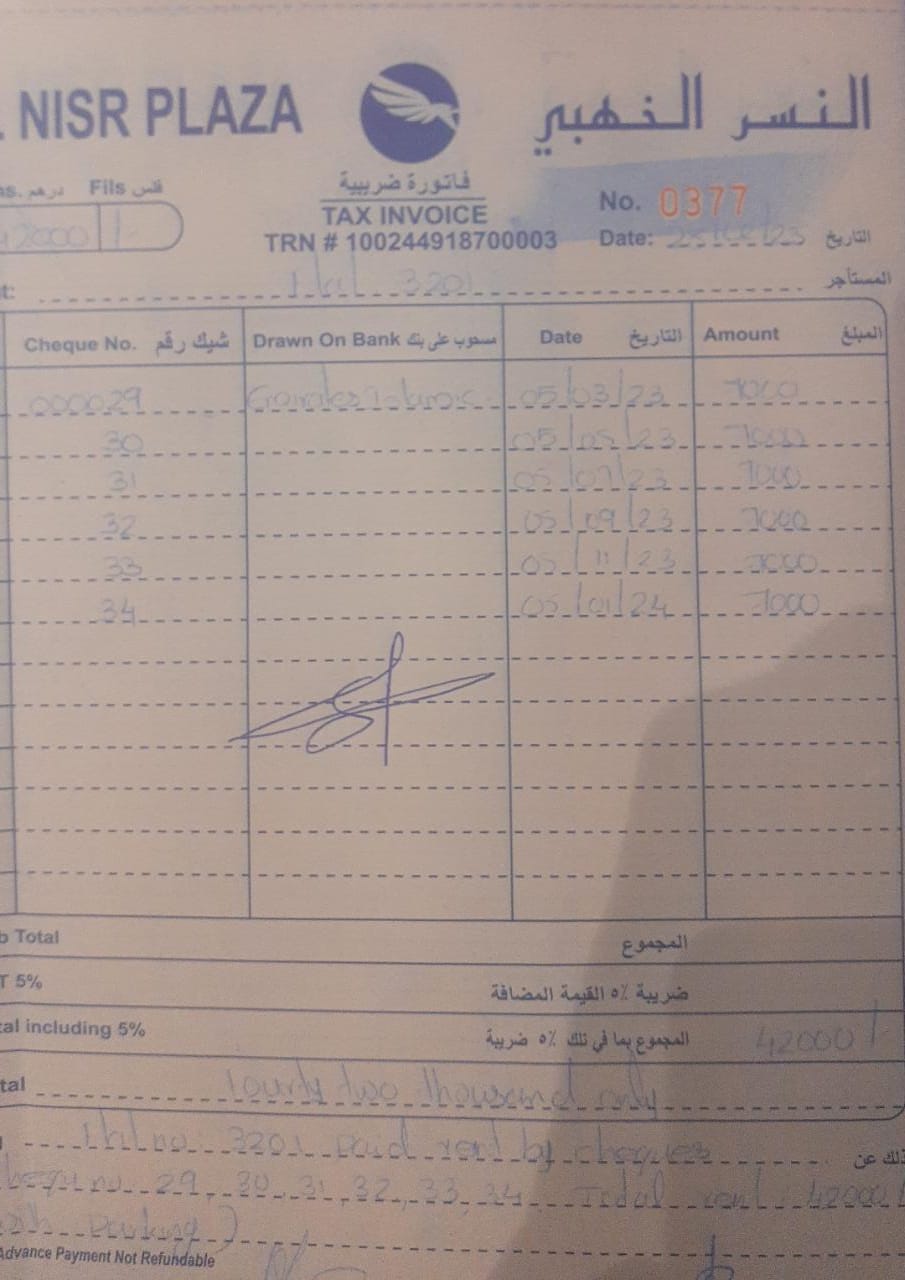 NISR PLAZA
النسر الذهبي
درهم Fils فلس
42000 /-
فاتورة ضريبية
TAX INVOICE
TRN # 100244918700003
No. 0377
Date: /23 التاريخ
3201 المستأجر
Cheque No. شيك رقم Drawn On Bank مسحوب على بنك Date التاريخ Amount المبلغ
000029 Emirates Islamic 05/03/23 7000
30 05/05/23 7000
31 05/07/23 7000
32 05/09/23 7000
33 05/11/23 7000
34 05/01/24 7000
Total المجموع
5% ضريبة ٥٪ القيمة المضافة
including 5% المجموع بما في تلك ٥٪ ضريبة 42000/
two thousand only
no: 3201 paid rent by cheques ذلك عن
no 29, 30, 31, 32, 33, 34 Total rent: 42000/
Parking)
Advance Payment Not Refundable